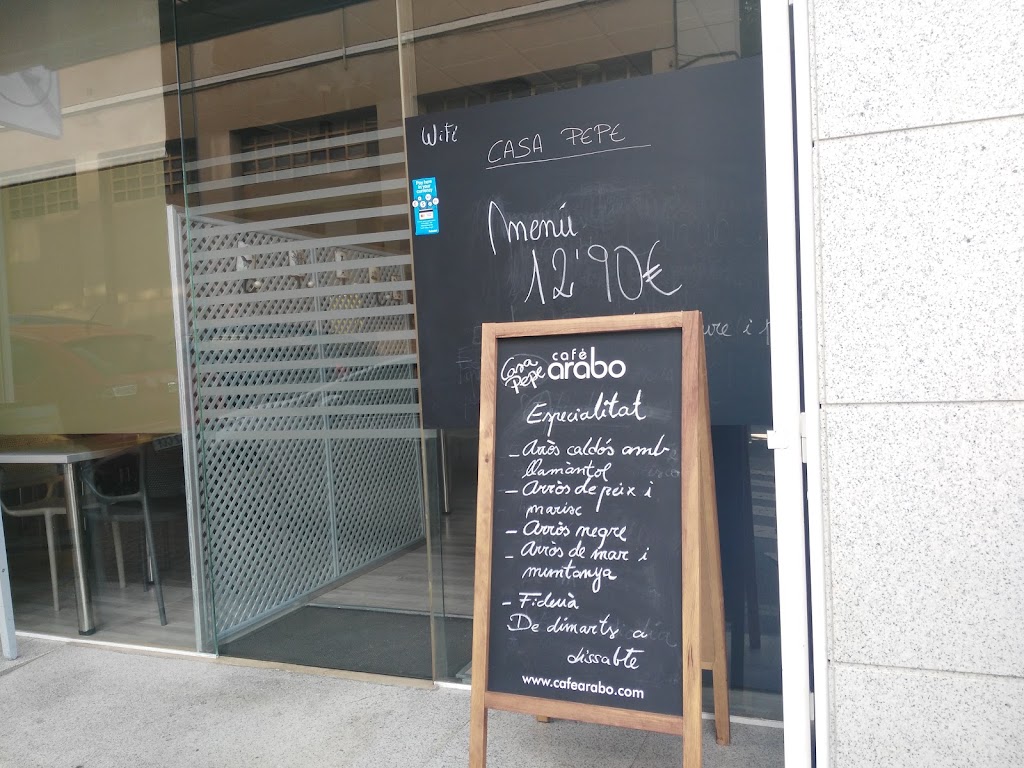 Wifi
CASA PEPE
Pay here
in your
currency
Menú
12'90€
ure i
Casa
Pepe
café
arabo
Especialitat
- Arròs caldós amb
llamàntol
- Arròs de peix i
marisc
- Arròs negre
- Arròs de mar i
muntanya
- Fideuà
De dimarts a
dissabte
www.cafearabo.com